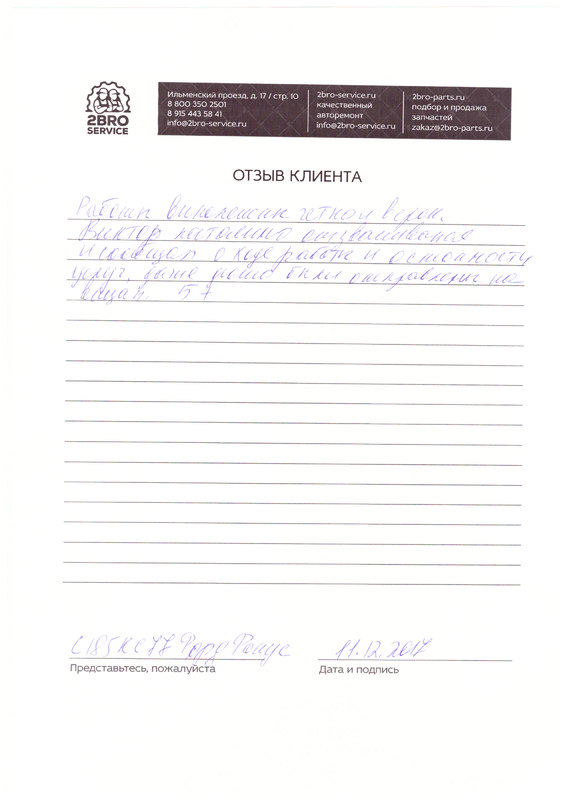 2BRO
SERVICE
Ильменский проезд, д. 17 / стр. 10
8 800 350 2501
8 915 443 58 41
info@2bro-service.ru
2bro-service.ru
качественный
авторемонт
info@2bro-service.ru
2bro-parts.ru
подбор и продажа
запчастей
zakaz@2bro-parts.ru
ОТЗЫВ КЛИЕНТА
Работы
Виктор постоянно отзванивался
и сообщал о ходе работ и
услуг, даже фото были отправлены на
вацап. 5
С185КС77 Форд Фокус
11.12.2017
Представьтесь, пожалуйста
Дата и подпись